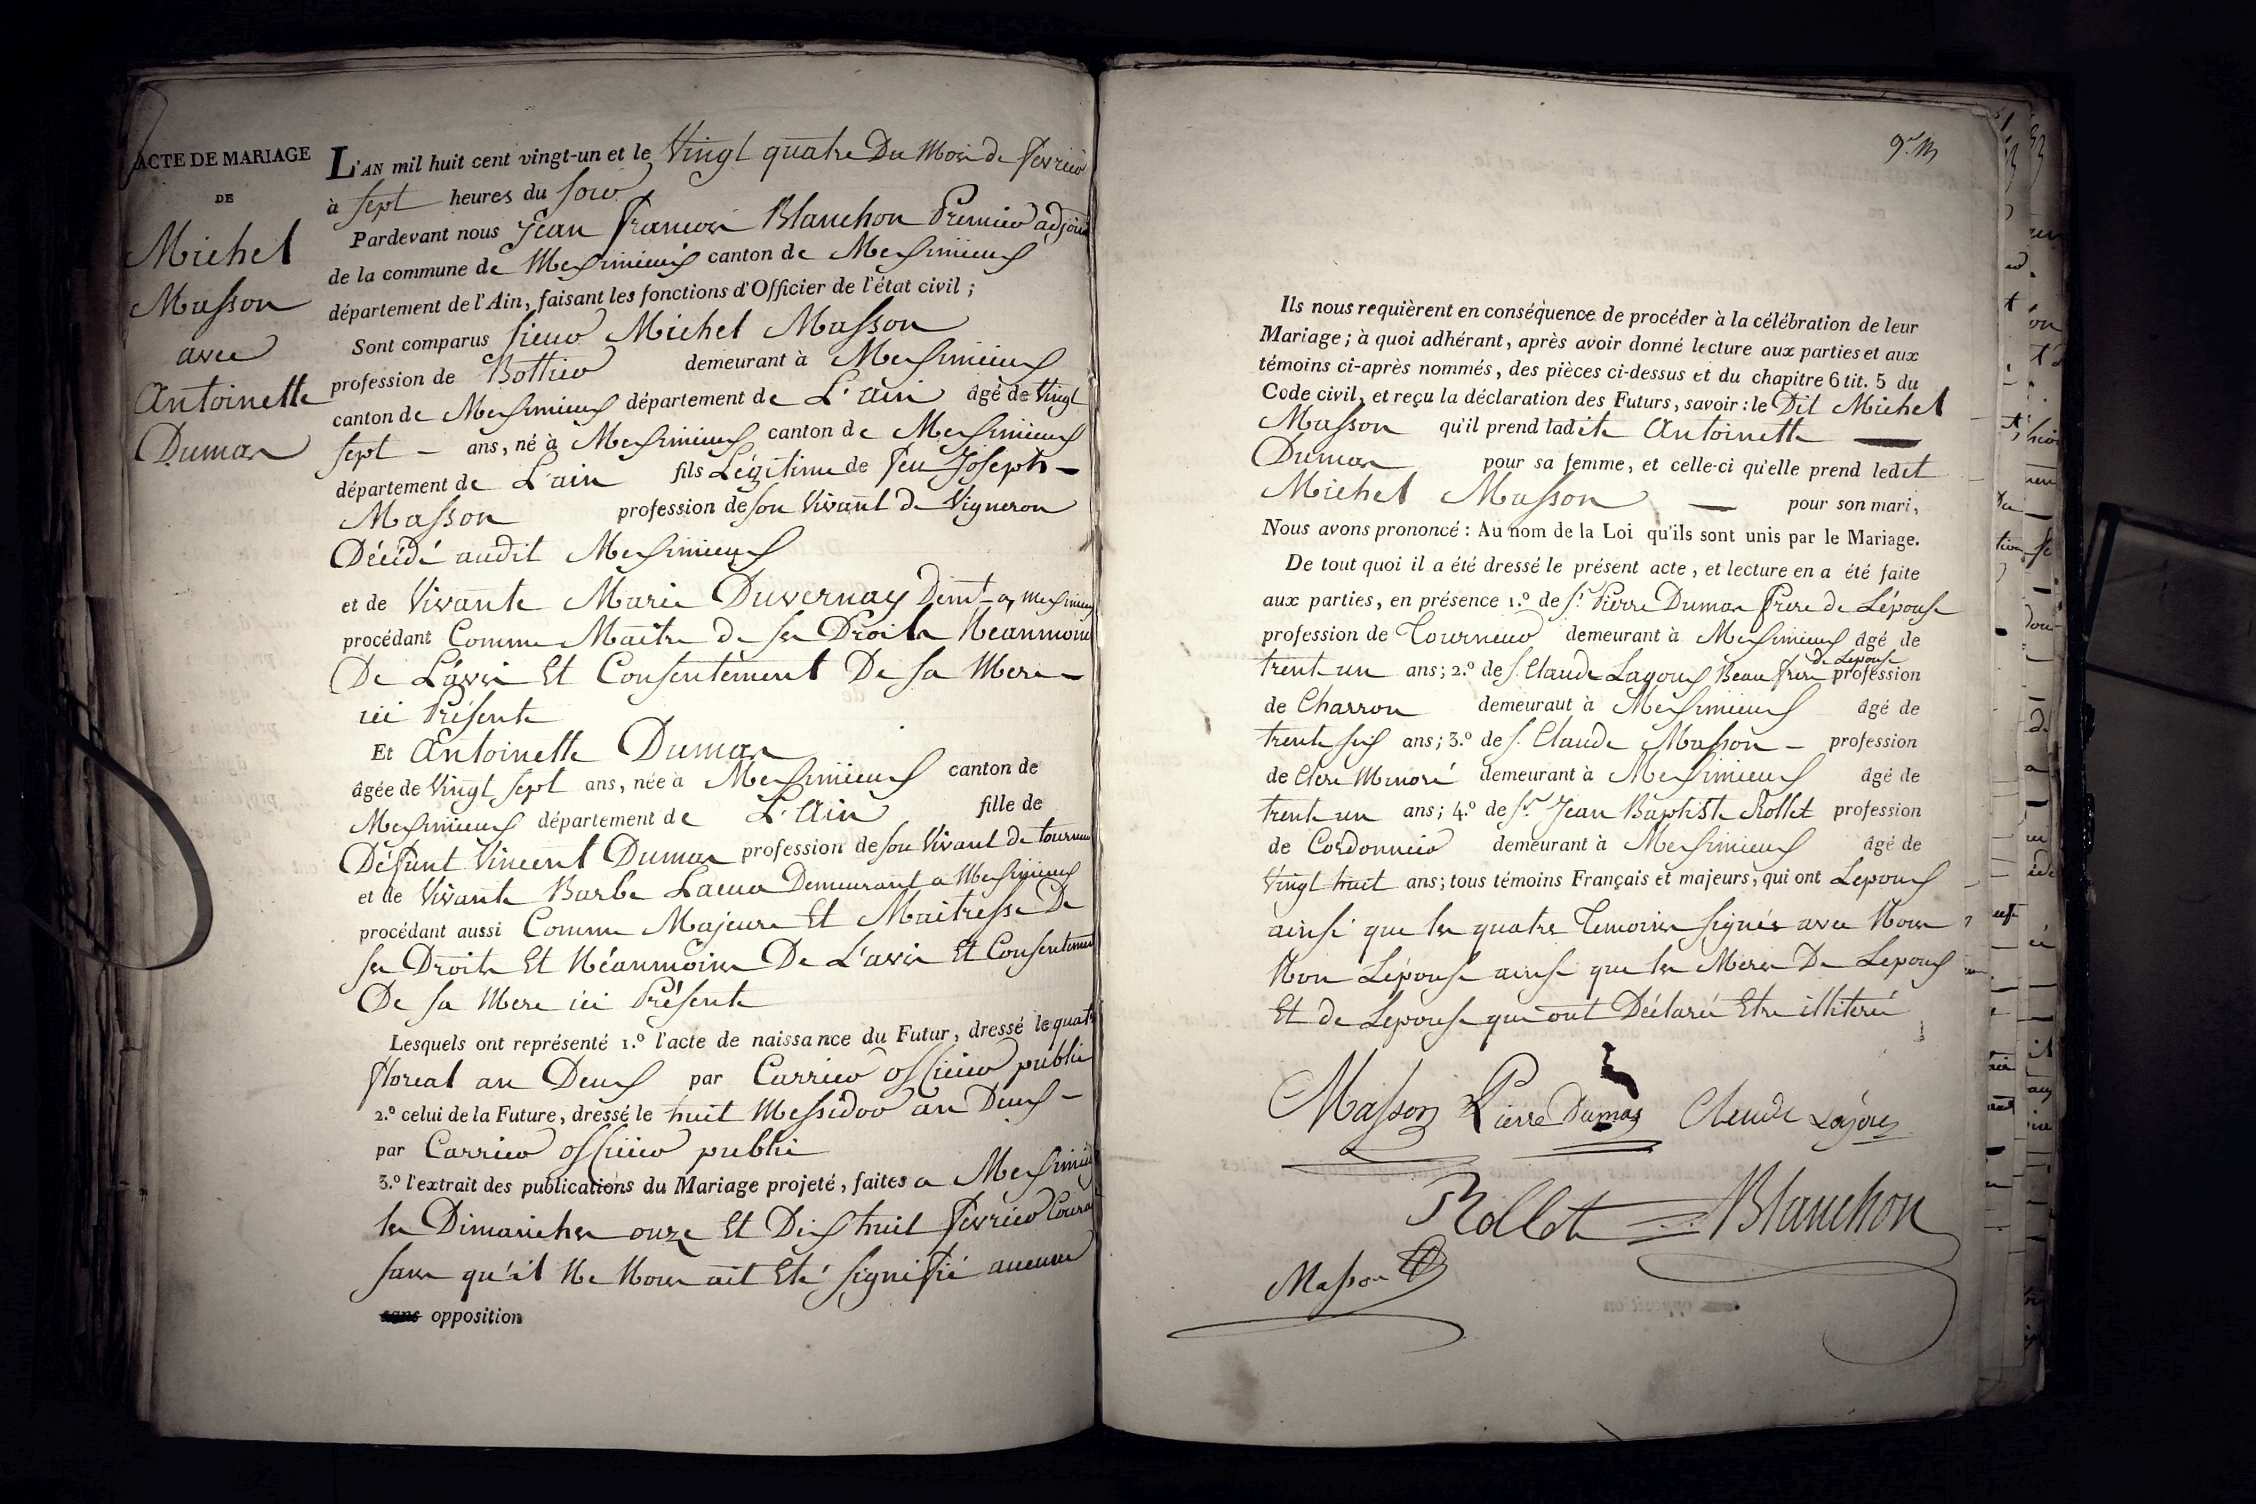 ACTE DE MARIAGE
DE
Michel
Masson
avec
Antoinette
Dumas
L'AN mil huit cent vingt-un et le Vingt quatre Du Mois de fevrier
à sept heures du soir
Pardevant nous Jean françois Blanchon Premier adjoint
de la commune de Meximieux canton de Meximieux
département de l'Ain, faisant les fonctions d'Officier de l'état civil ;
Sont comparus sieur Michel Masson
profession de Bottier demeurant à Meximieux
canton de Meximieux département de L'ain âgé de Vingt
sept – ans, né à Meximieux canton de Meximieux
département de L'ain fils Légitime de feu Joseph –
Masson profession de son Vivant de Vigneron
Décédé audit Meximieux
et de Vivante Marie Duvernay Demt a Meximieux
procédant Comme Maitre de ses Droits Neanmoins
De L'avis Et Consentement De sa Mere –
ici Présente
Et Antoinette Dumas
âgée de Vingt sept ans, née à Meximieux canton de
Meximieux département de L'Ain fille de
Défunt Vincent Dumas profession de son Vivant de tourneur
et de Vivante Barbe Demeurant a Meximieux
procédant aussi Comme Majeure Et Maitresse De
ses Droits Et Néanmoins De L'avis Et Consentement
De sa Mere ici Présente
Lesquels ont représenté 1.º l'acte de naissance du Futur, dressé le quatre
floreal an Deux par Carrier officier public
2.º celui de la Future, dressé le huit Messidor an Deux –
par Carrier officier public
3.º l'extrait des publications du Mariage projeté, faites a Meximieux
les Dimanches onze Et Dix huit fevrier Courant
sans qu'il Ne Nous ait Eté signifié aucune
sans opposition
9.e M
Ils nous requièrent en conséquence de procéder à la célébration de leur
Mariage ; à quoi adhérant, après avoir donné lecture aux parties et aux
témoins ci-après nommés, des pièces ci-dessus et du chapitre 6 tit. 5 du
Code civil, et reçu la déclaration des Futurs, savoir : le Dit Michel
Masson qu'il prend ladite Antoinette —
Dumas pour sa femme, et celle-ci qu'elle prend ledit
Michel Masson — pour son mari,
Nous avons prononcé : Au nom de la Loi qu'ils sont unis par le Mariage.
De tout quoi il a été dressé le présent acte, et lecture en a été faite
aux parties, en présence 1.º de sr Pierre Dumas frere de Lépouse
profession de Tourneur demeurant à Meximieux âgé de
de Lepouse
trente un ans ; 2.º de s. Claude Layoux Beau frere profession
de Charron demeurant à Meximieux âgé de
trente six ans ; 3.º de s. Claude Masson – profession
de Clerc Minoré demeurant à Meximieux âgé de
trente un ans ; 4.º de sr Jean Baptiste Rollet profession
de Cordonnier demeurant à Meximieux âgé de
Vingt huit ans ; tous témoins Français et majeurs, qui ont Lepoux
ainsi que les quatre Temoins signés avec Nous
Non Lépouse ainsi que les Meres De Lepoux
Et de Lepouse qui ont Déclaré Etre illiteré
Masson Pierre Dumas Claude Layoux
Rollet Blanchon
Masson